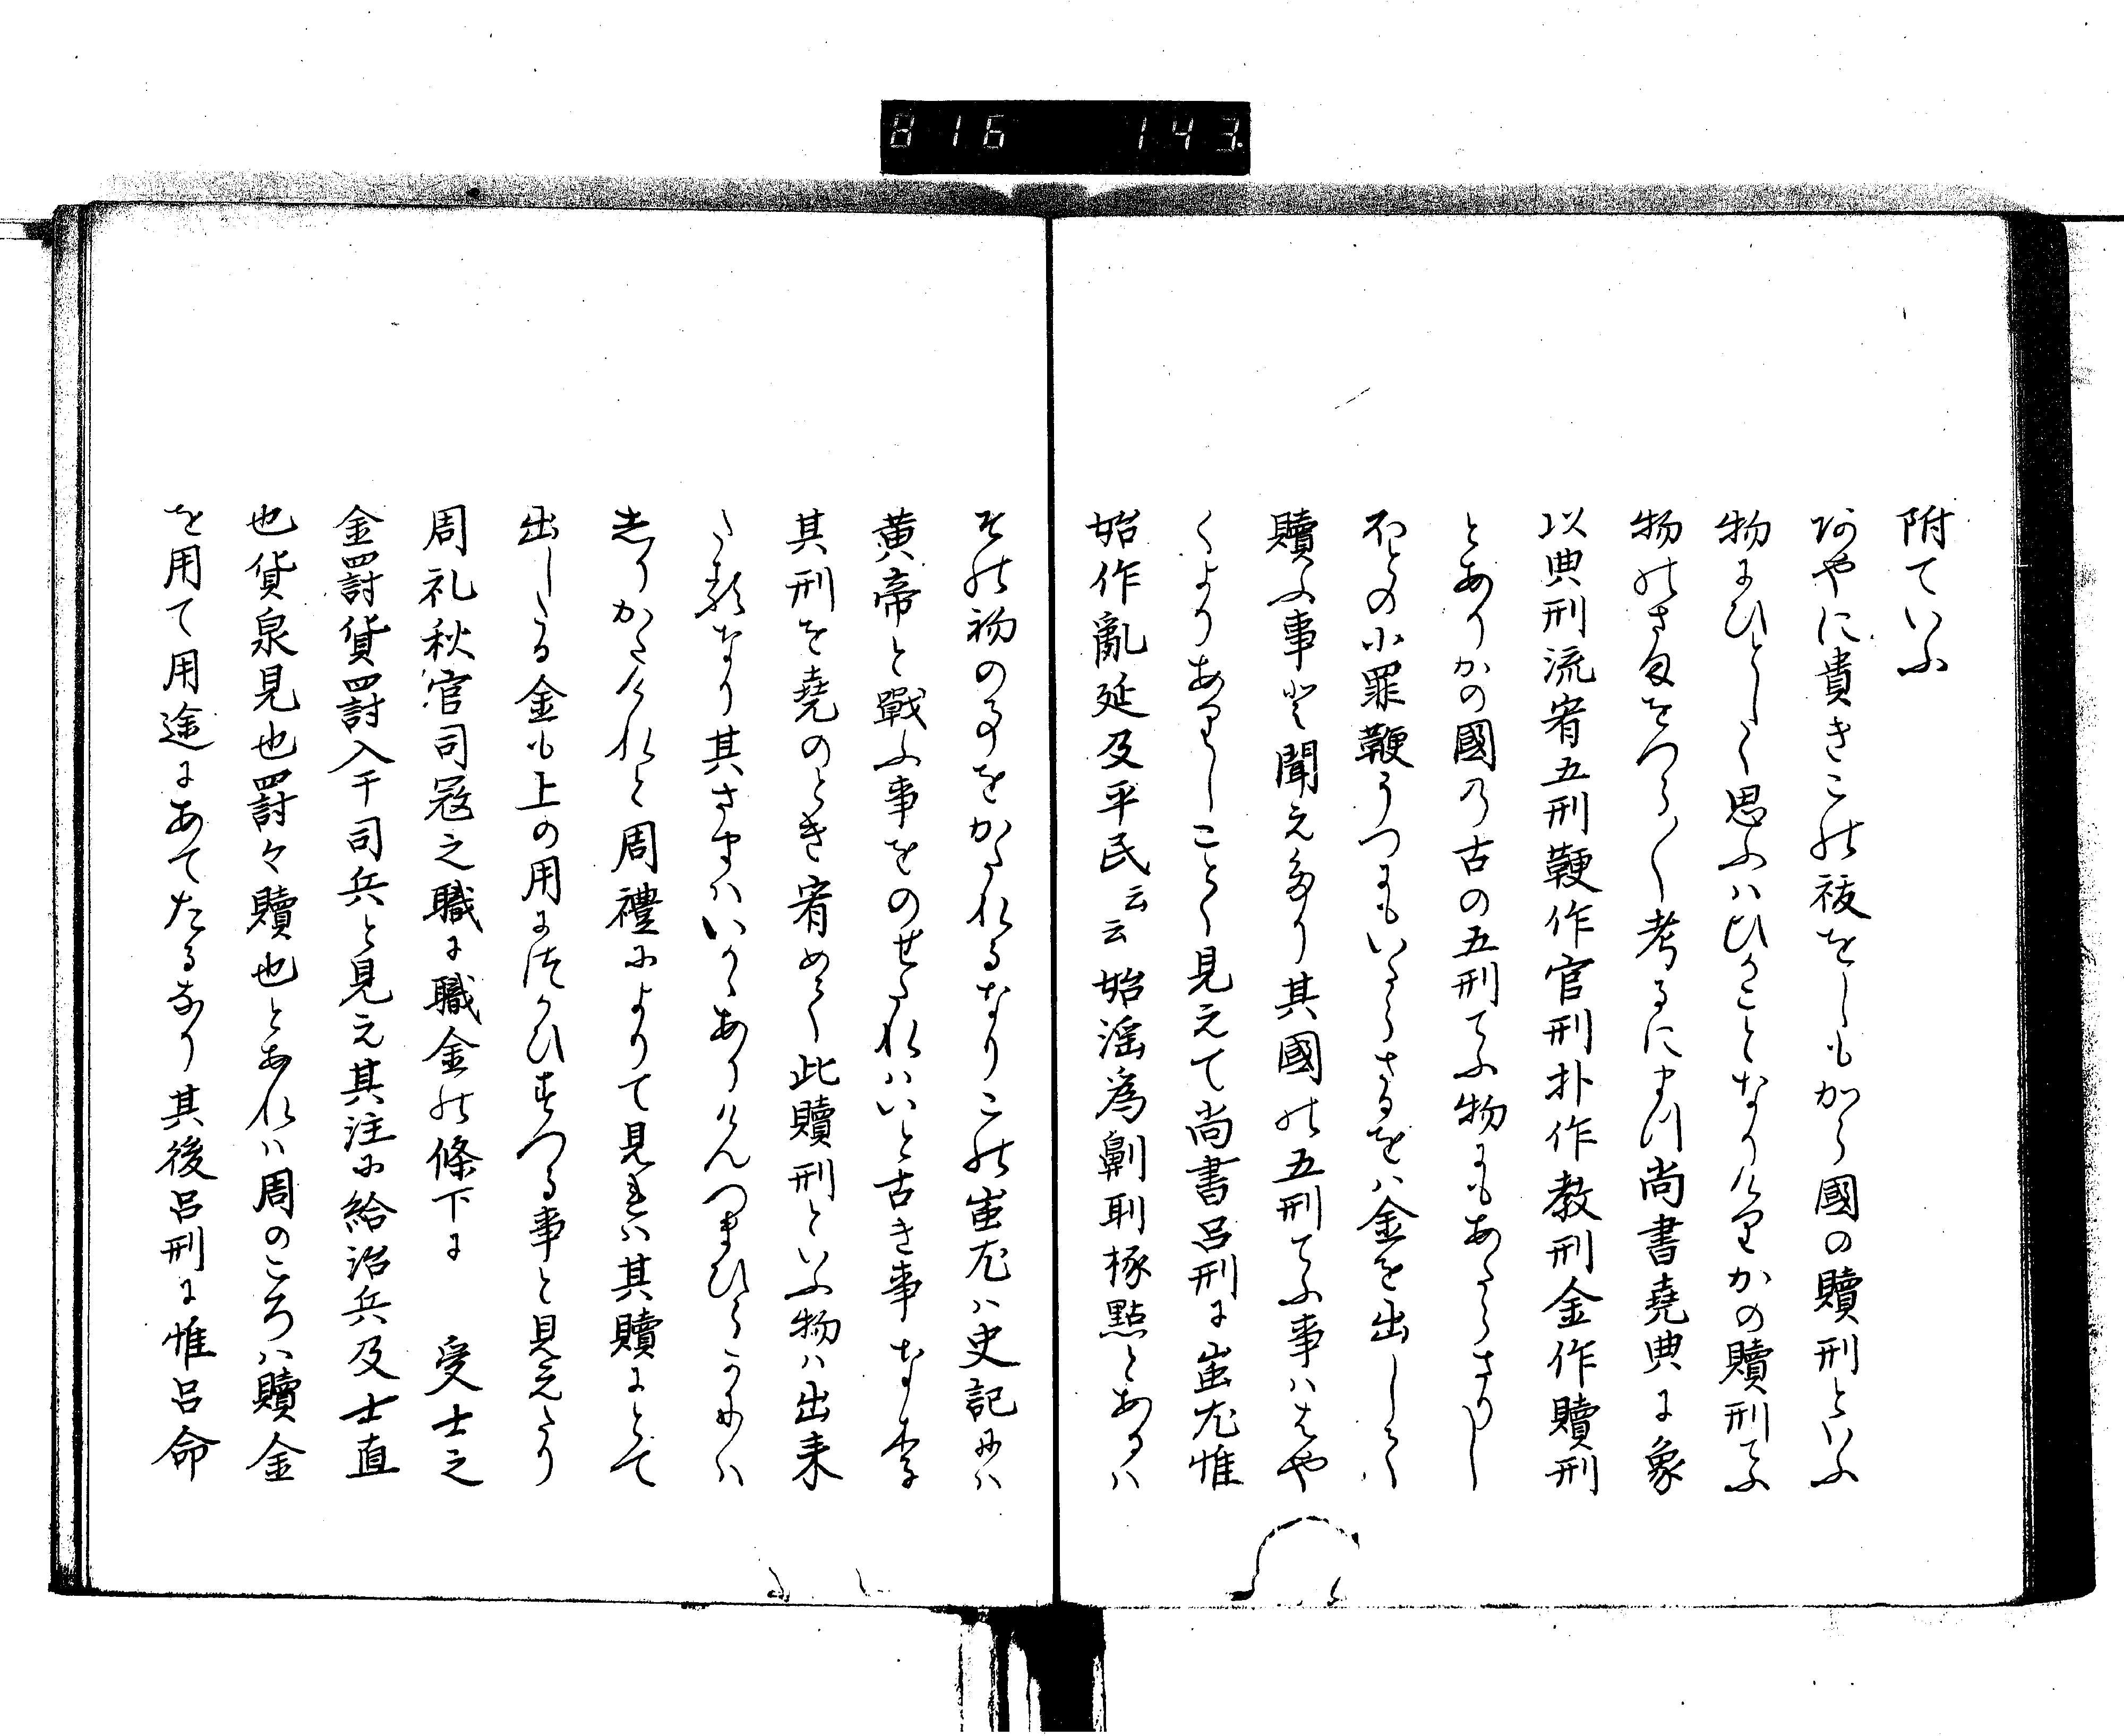 816 143
附ていふ
あやに貴きこの祓をしもから國の贖刑といふ
物にひとしく思ふハひかことなりけりかの贖刑てふ
物のさまをつら〱考るにまつ尚書堯典に象
以典刑流宥五刑鞭作官刑扑作教刑金作贖刑
とありかの國の古の五刑てふ物にもあたらさりし
ほとの小罪鞭うつにもいたらさるをハ金を出して
贖ふ事と聞えたり其國の五刑てふ事ハはや
くよりありしことく見えて尚書呂刑に蚩尤惟
始作亂延及平民云云始淫爲劓刵椓黥とあるハ
その初の事をかたれるなりこの蚩尤ハ史記にハ
黄帝と戰ふ事をのせたれハいと古き事なり
其刑を堯のとき宥めて此贖刑といふ物ハ出来
たるなり其さまハいかゝありけんつまひらかにハ
しりかたけれと周禮によりて見れハ其贖にとて
出したる金も上の用につかひすつる事と見えたり
周礼秋官司寇之職に職金の條下に 受士之
金罰貨罰入于司兵と見え其注に給治兵及士直
也貨泉見也罰々贖也とあれハ周のころハ贖金
を用て用途にあてたるなり其後呂刑に惟呂命